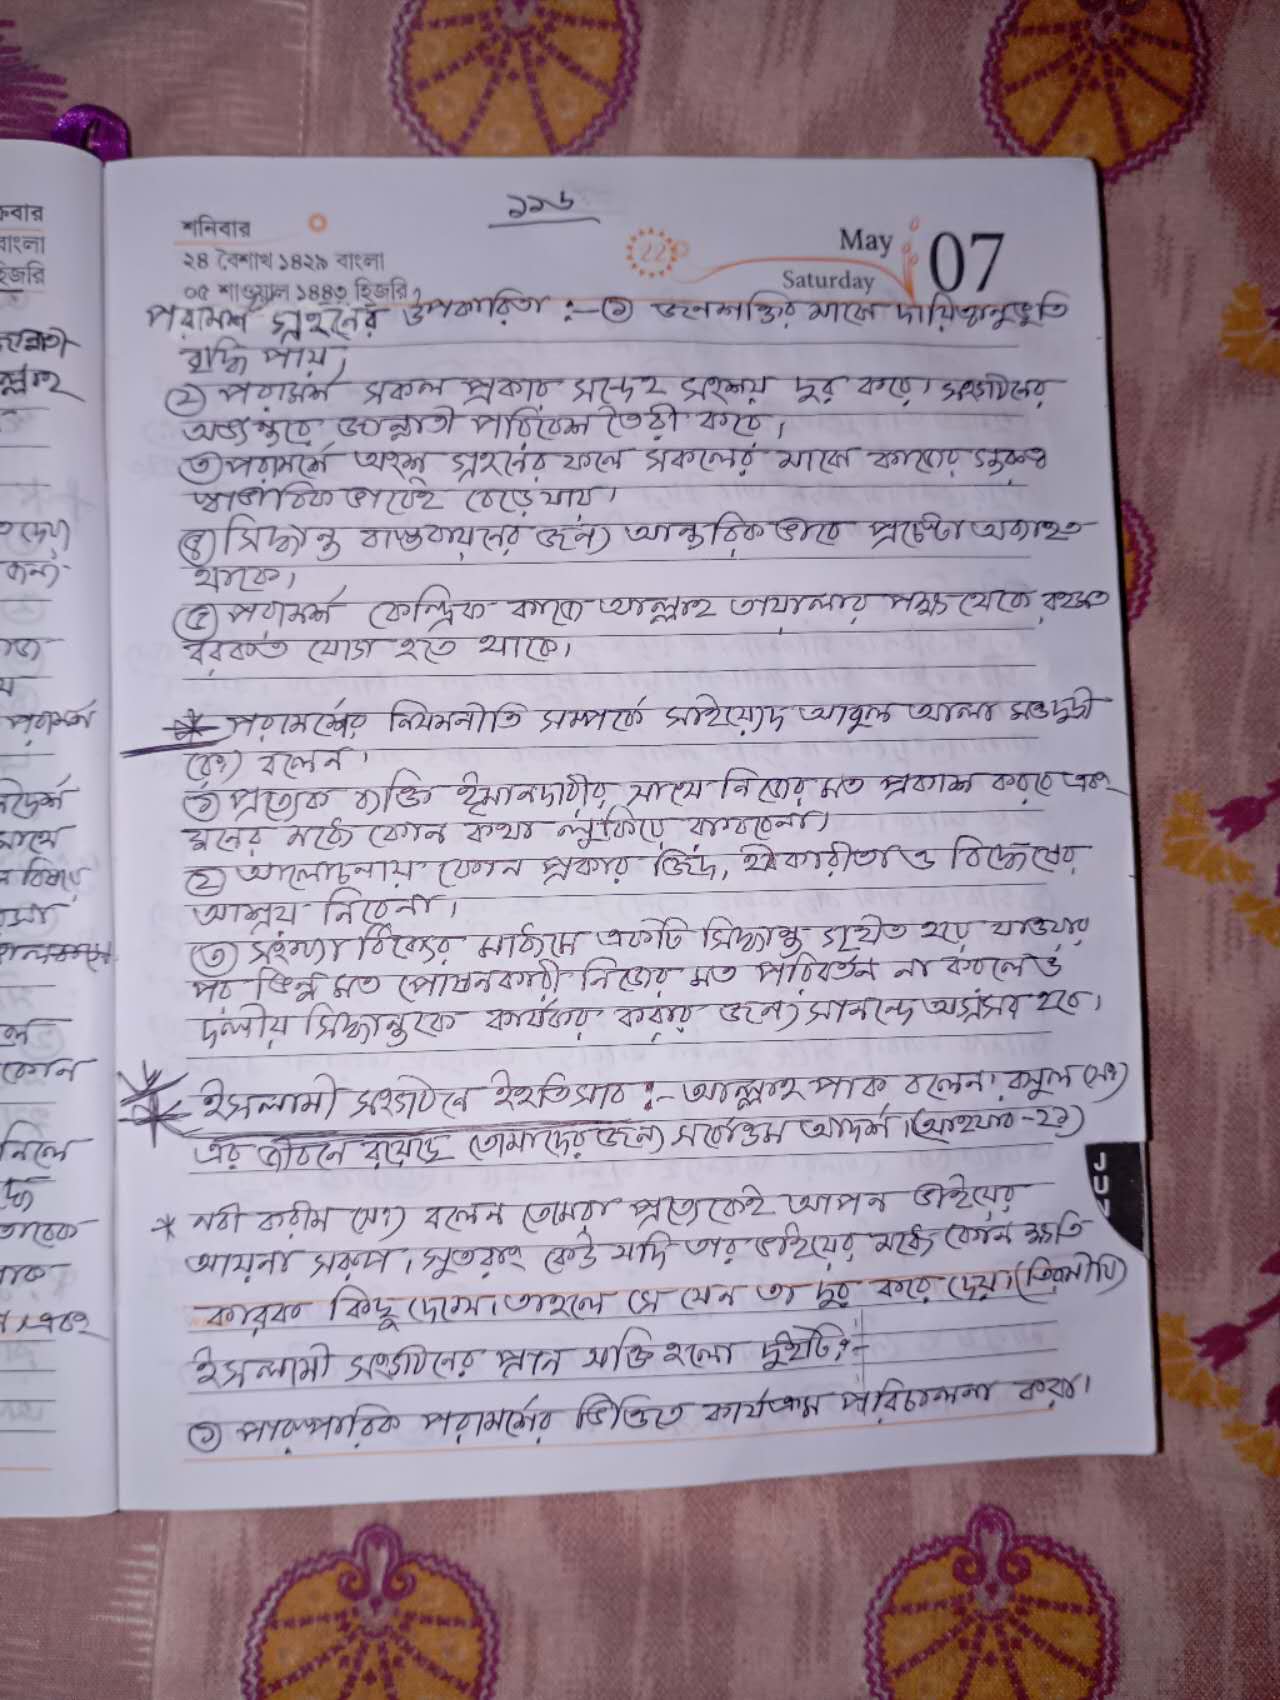 ১১৬
শনিবার
২৪ বৈশাখ ১৪২৯ বাংলা
০৫ শাওয়াল ১৪৪৩ হিজরি
22
May 07
Saturday
পরামর্শ গ্রহনের উপকারিতা :- ① জনশক্তির মাঝে দায়িত্বানুভূতি
বৃদ্ধি পায়,
② পরামর্শ সকল প্রকার সন্দেহ সংশয় দুর করে। সংগঠনের
অভ্যন্তরে জান্নাতী পরিবেশ তৈরী করে,
③ পরামর্শে অংশ গ্রহনের ফলে সকলের মাঝে কাজের গুরুত্ব
স্বাভাবিক ভাবেই বেড়ে যায়।
④ সিদ্ধান্ত বাস্তবায়নের জন্য আন্তরিক ভাবে প্রচেষ্টা অব্যাহত
থাকে।
⑤ পরামর্শ কেন্দ্রিক কাজে আল্লাহ তায়ালার পক্ষ থেকে রহমত
বরকত যোগ হতে থাকে।
* পরামর্শের নিয়মনীতি সম্পর্কে সাইয়্যেদ আবুল আলা মওদুদী
(রঃ) বলেন।
① প্রত্যেক ব্যক্তি ইমানদারীর সাথে নিজের মত প্রকাশ করবে এবং
মনের মধ্যে কোন কথা লুকিয়ে রাখবেনা।
② আলোচনায় কোন প্রকার জিদ, হটকারীতা ও বিদ্বেষের
আশ্রয় নিবেনা।
③ সংখ্যা ধিক্যের মাধ্যমে একটি সিদ্ধান্ত গৃহীত হয়ে যাওয়ার
পর ভিন্ন মত পোষনকারী নিজের মত পরিবর্তন না করলেও
দলীয় সিদ্ধান্তকে কার্যকর করার জন্য সানন্দে অগ্রসর হবে।
* ইসলামী সংগঠনে ইহতিসাব :- আল্লাহ পাক বলেন, রসুল (সঃ)
এর জীবনে রয়েছে তোমাদের জন্য সর্বোত্তম আদর্শ। (আহযাব-২১)
* নবী কারীম (সঃ) বলেন তোমরা প্রত্যেকেই আপন ভাইয়ের
আয়না সরূপ। সুতরাং কেউ যদি তার ভাইয়ের মধ্যে কোন ক্ষতি
কারক কিছু দেখে, তাহলে সে যেন তা দুর করে দেয়। (তিরমীযি)
ইসলামী সংগঠনের প্রান শক্তি হলো দুইটি:-
① পারস্পারিক পরামর্শের ভিত্তিতে কার্যক্রম পরিচালনা করা।
JUN
পরামর্শ
সাথে
কোন
নিলে